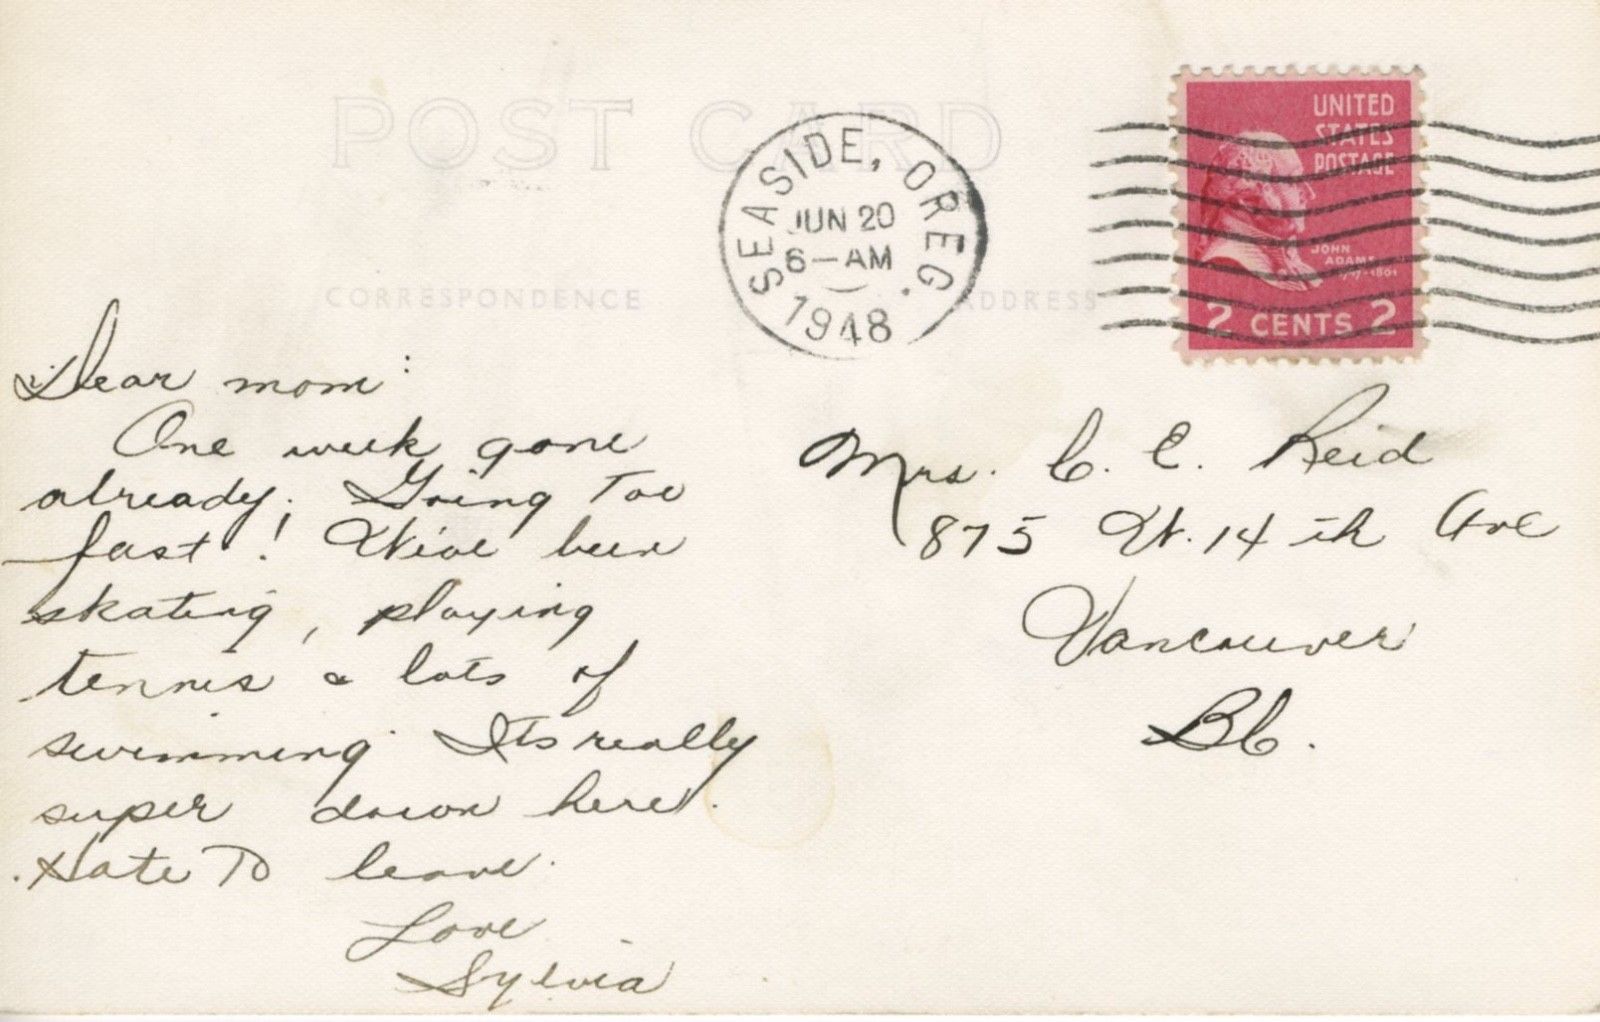 POST CARD
SEASIDE, OREG.
JUN 20
6-AM
1948
UNITED
STATES
POSTAGE
JOHN
ADAMS
1797-1801
2 CENTS 2
CORRESPONDENCE
ADDRESS
Dear mom:
One week gone
already. Going Too
fast! We've been
skating, playing
tennis & lots of
swimming. Its really
super down here.
Hate To leave.
Love
Sylvia
Mrs. C. E. Reid
875 W. 14 th Ave
Vancouver
BC.